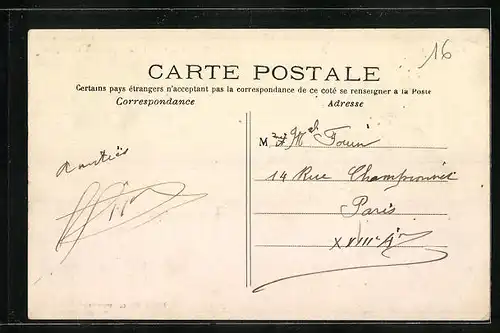 16
CARTE POSTALE
Certains pays étrangers n'acceptant pas la correspondance de ce coté se renseigner à la Poste
Correspondance
Adresse
Amitiés
M
14 Rue Championnet
Paris
XVIIIe Ar